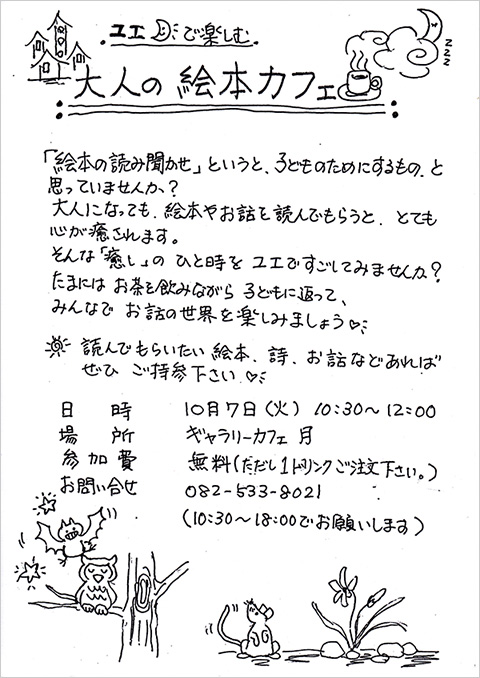 ユエ で楽しむ
大人の 絵本カフェ
zzz
「絵本の読み聞かせ」というと、子どものためにするもの、と
思っていませんか？
大人になっても、絵本やお話を読んでもらうと、とても
心が癒されます。
そんな「癒し」の ひと時を ユエですごしてみませんか？
たまには お茶を飲みながら 子どもに返って、
みんなで お話の世界を楽しみましょう♡
読んでもらいたい 絵本、詩、お話などあれば
ぜひ ご持参下さい♡
日 時 10月7日(火) 10:30〜12:00
場 所 ギャラリーカフェ 月
参加費 無料(ただし1ドリンクご注文下さい。)
お問い合せ 082-533-8021
(10:30〜18:00でお願いします)